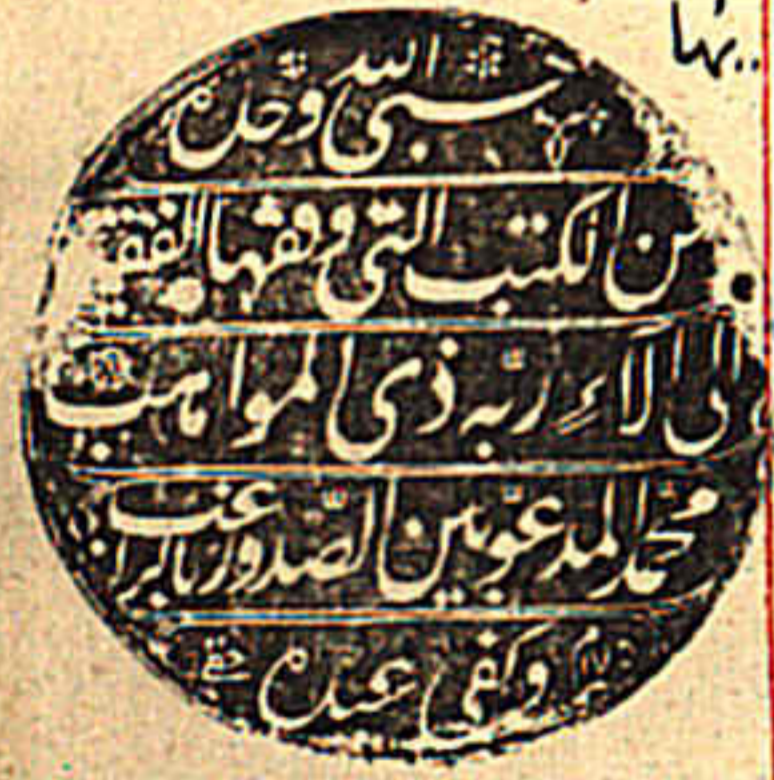 حسبي الله وحده
من الكتب التي وقفها الفقير
الى آلاءِ ربّه ذى المواهب
محمد المدعو بين الصّدور بالراغب
وكفى عبده